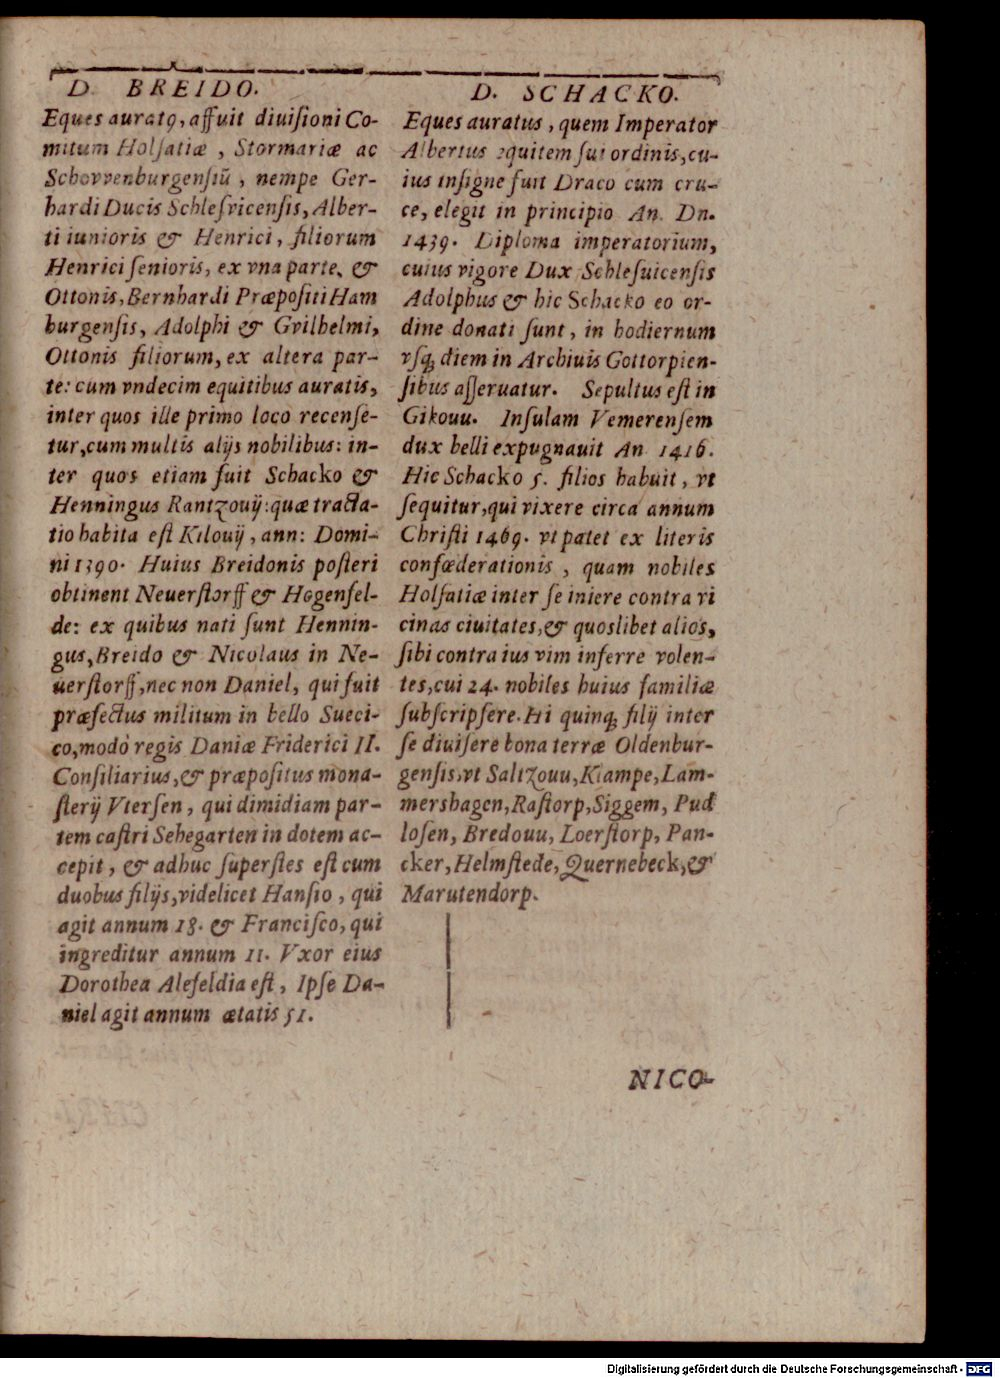 D. BREIDO.
Eques auratꝰ, aſſuit diuiſioni Co-
mitum Holſatiæ, Stormariæ ac
Schovvenburgenſiũ, nempe Ger-
hardi Ducis Schleſvicenſis, Alber-
ti iunioris & Henrici, filiorum
Henrici ſenioris, ex vna parte, &
Ottonis, Bernhardi Præpoſiti Ham
burgenſis, Adolphi & Gvilhelmi,
Ottonis filiorum, ex altera par-
te: cum vndecim equitibus auratis,
inter quos ille primo loco recenſe-
tur, cum multis alijs nobilibus: in-
ter quos etiam fuit Schacko &
Henningus Rantzouij: quæ tracta-
tio habita eſt Kilouij, ann: Domi-
ni 1390. Huius Breidonis poſteri
obtinent Neuerſtorff & Hogenſel-
de: ex quibus nati ſunt Hennin-
gus, Breido & Nicolaus in Ne-
uerſtorff, nec non Daniel, qui fuit
præfectus militum in bello Sueci-
co, modò regis Daniæ Friderici II.
Conſiliarius, & præpoſitus mona-
ſterij Vterſen, qui dimidiam par-
tem caſtri Sehegarten in dotem ac-
cepit, & adhuc ſuperſtes eſt cum
duobus filijs, videlicet Hanſio, qui
agit annum 18. & Franciſco, qui
ingreditur annum 11. Vxor eius
Dorothea Alefeldia eſt, Ipſe Da-
niel agit annum ætatis 51.
D. SCHACKO.
Eques auratus, quem Imperator
Albertus equitem ſui ordinis, cu-
ius inſigne fuit Draco cum cru-
ce, elegit in principio An. Dn.
1439. Diploma imperatorium,
cuius vigore Dux Schleſuicenſis
Adolphus & hic Schacko eo or-
dine donati ſunt, in hodiernum
vſq; diem in Archiuis Gottorpien-
ſibus aſſeruatur. Sepultus eſt in
Gikouu. Inſulam Vemerenſem
dux belli expugnauit An 1416.
Hic Schacko 5. filios habuit, vt
ſequitur, qui vixere circa annum
Chriſti 1469. vt patet ex literis
confœderationis, quam nobiles
Holſatiæ inter ſe iniere contra vi
cinas ciuitates, & quoslibet alios,
ſibi contra ius vim inferre volen-
tes, cui 24. nobiles huius familiæ
ſubſcripſere. Hi quinq; filij inter
ſe diuiſere bona terræ Oldenbur-
genſis, vt Saltzouu, Klampe, Lam-
mershagen, Raſtorp, Siggem, Pud
loſen, Bredouu, Loerſtorp, Pan-
cker, Helmſtede, Quernebeck, &
Marutendorp.
NICO-
Digitalisierung gefördert durch die Deutsche Forschungsgemeinschaft - DFG